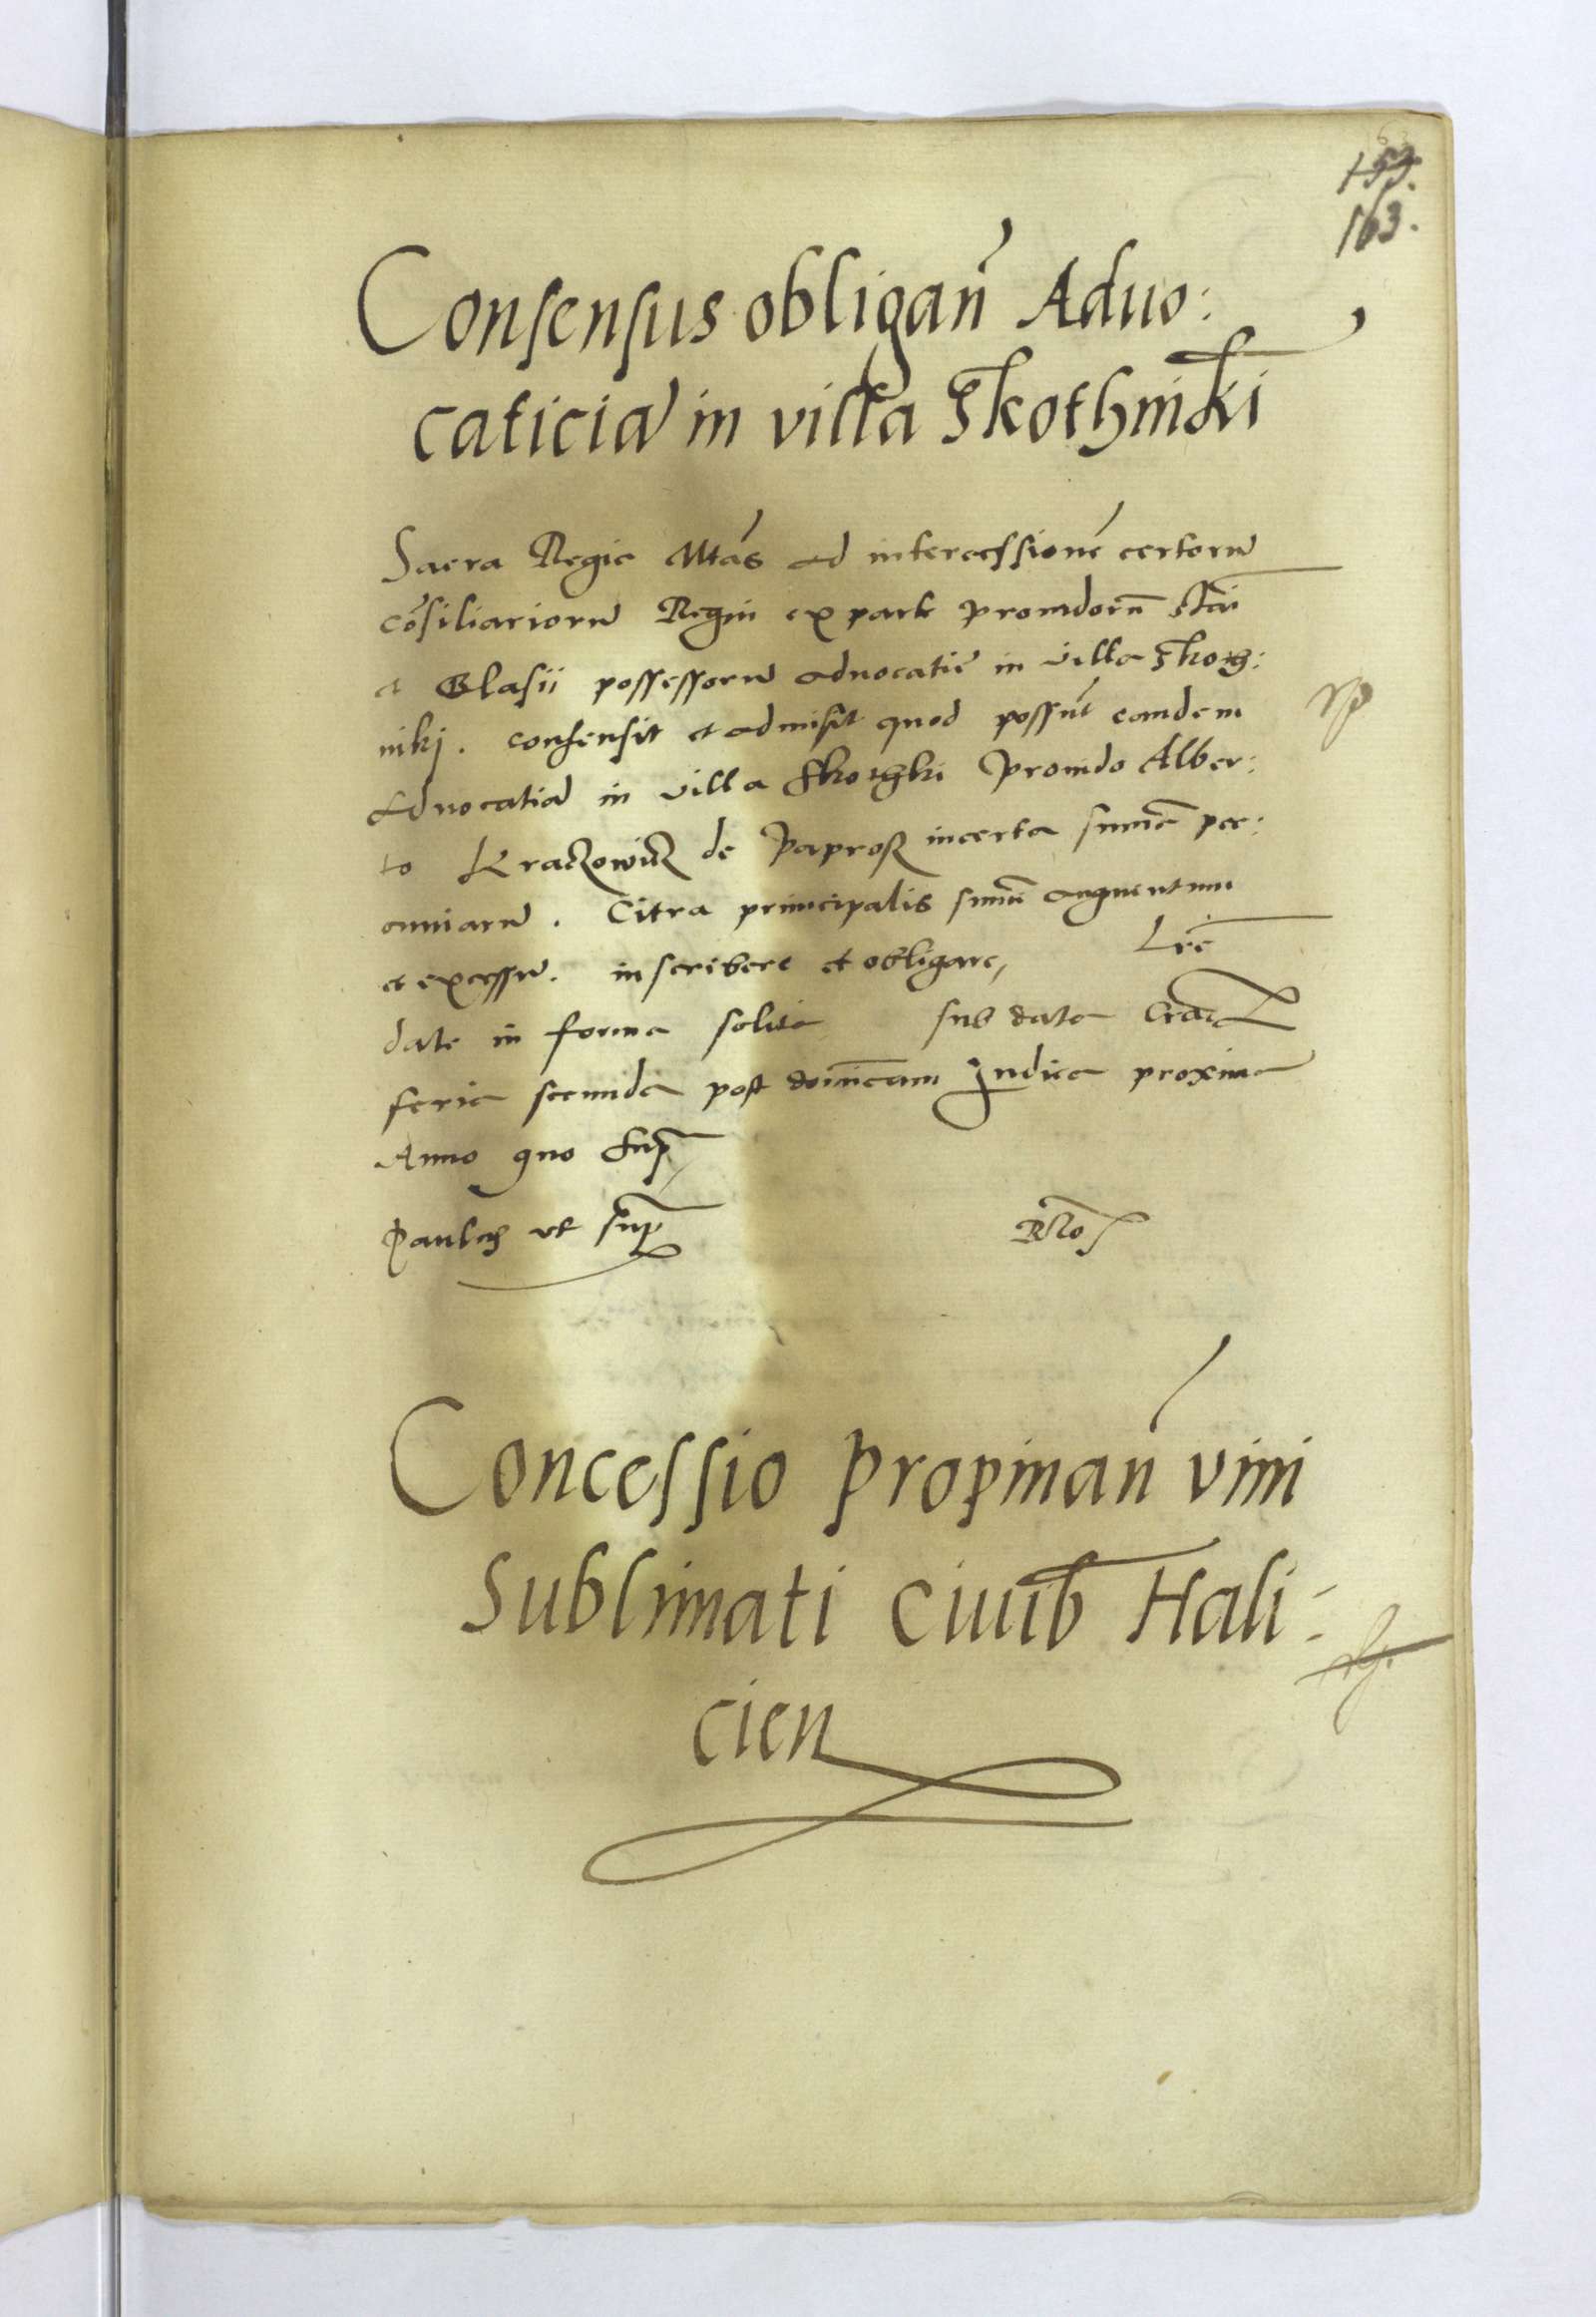 153.
163.
Consensus obligan̄ Aduo:
caticiā in villa Skothniki
Sacra Regia Mtās ad intercessionē certorū
cōsiliariorū Regni ex parte prouidorū Stāi
et Blasii possessorū aduocatiē in villa Skoth:
nikj. consensit et admisit quod possūt eandem
Aduocatiā in villa Skothki prouido Alber:
to Kraczowicz de Paprosz in certa sum̄a pec:
cuniarū. Citra principalis sum̄e augmentum
et excessū. inscribere et obligare, Lrē
date in forma solita sub data Crac
feria secunda post dominicam Judica proxima
Anno quo supr
Paulus ut supr
RNo
Concessio propinan̄ vini
Sublimati ciuib Hali:
cien